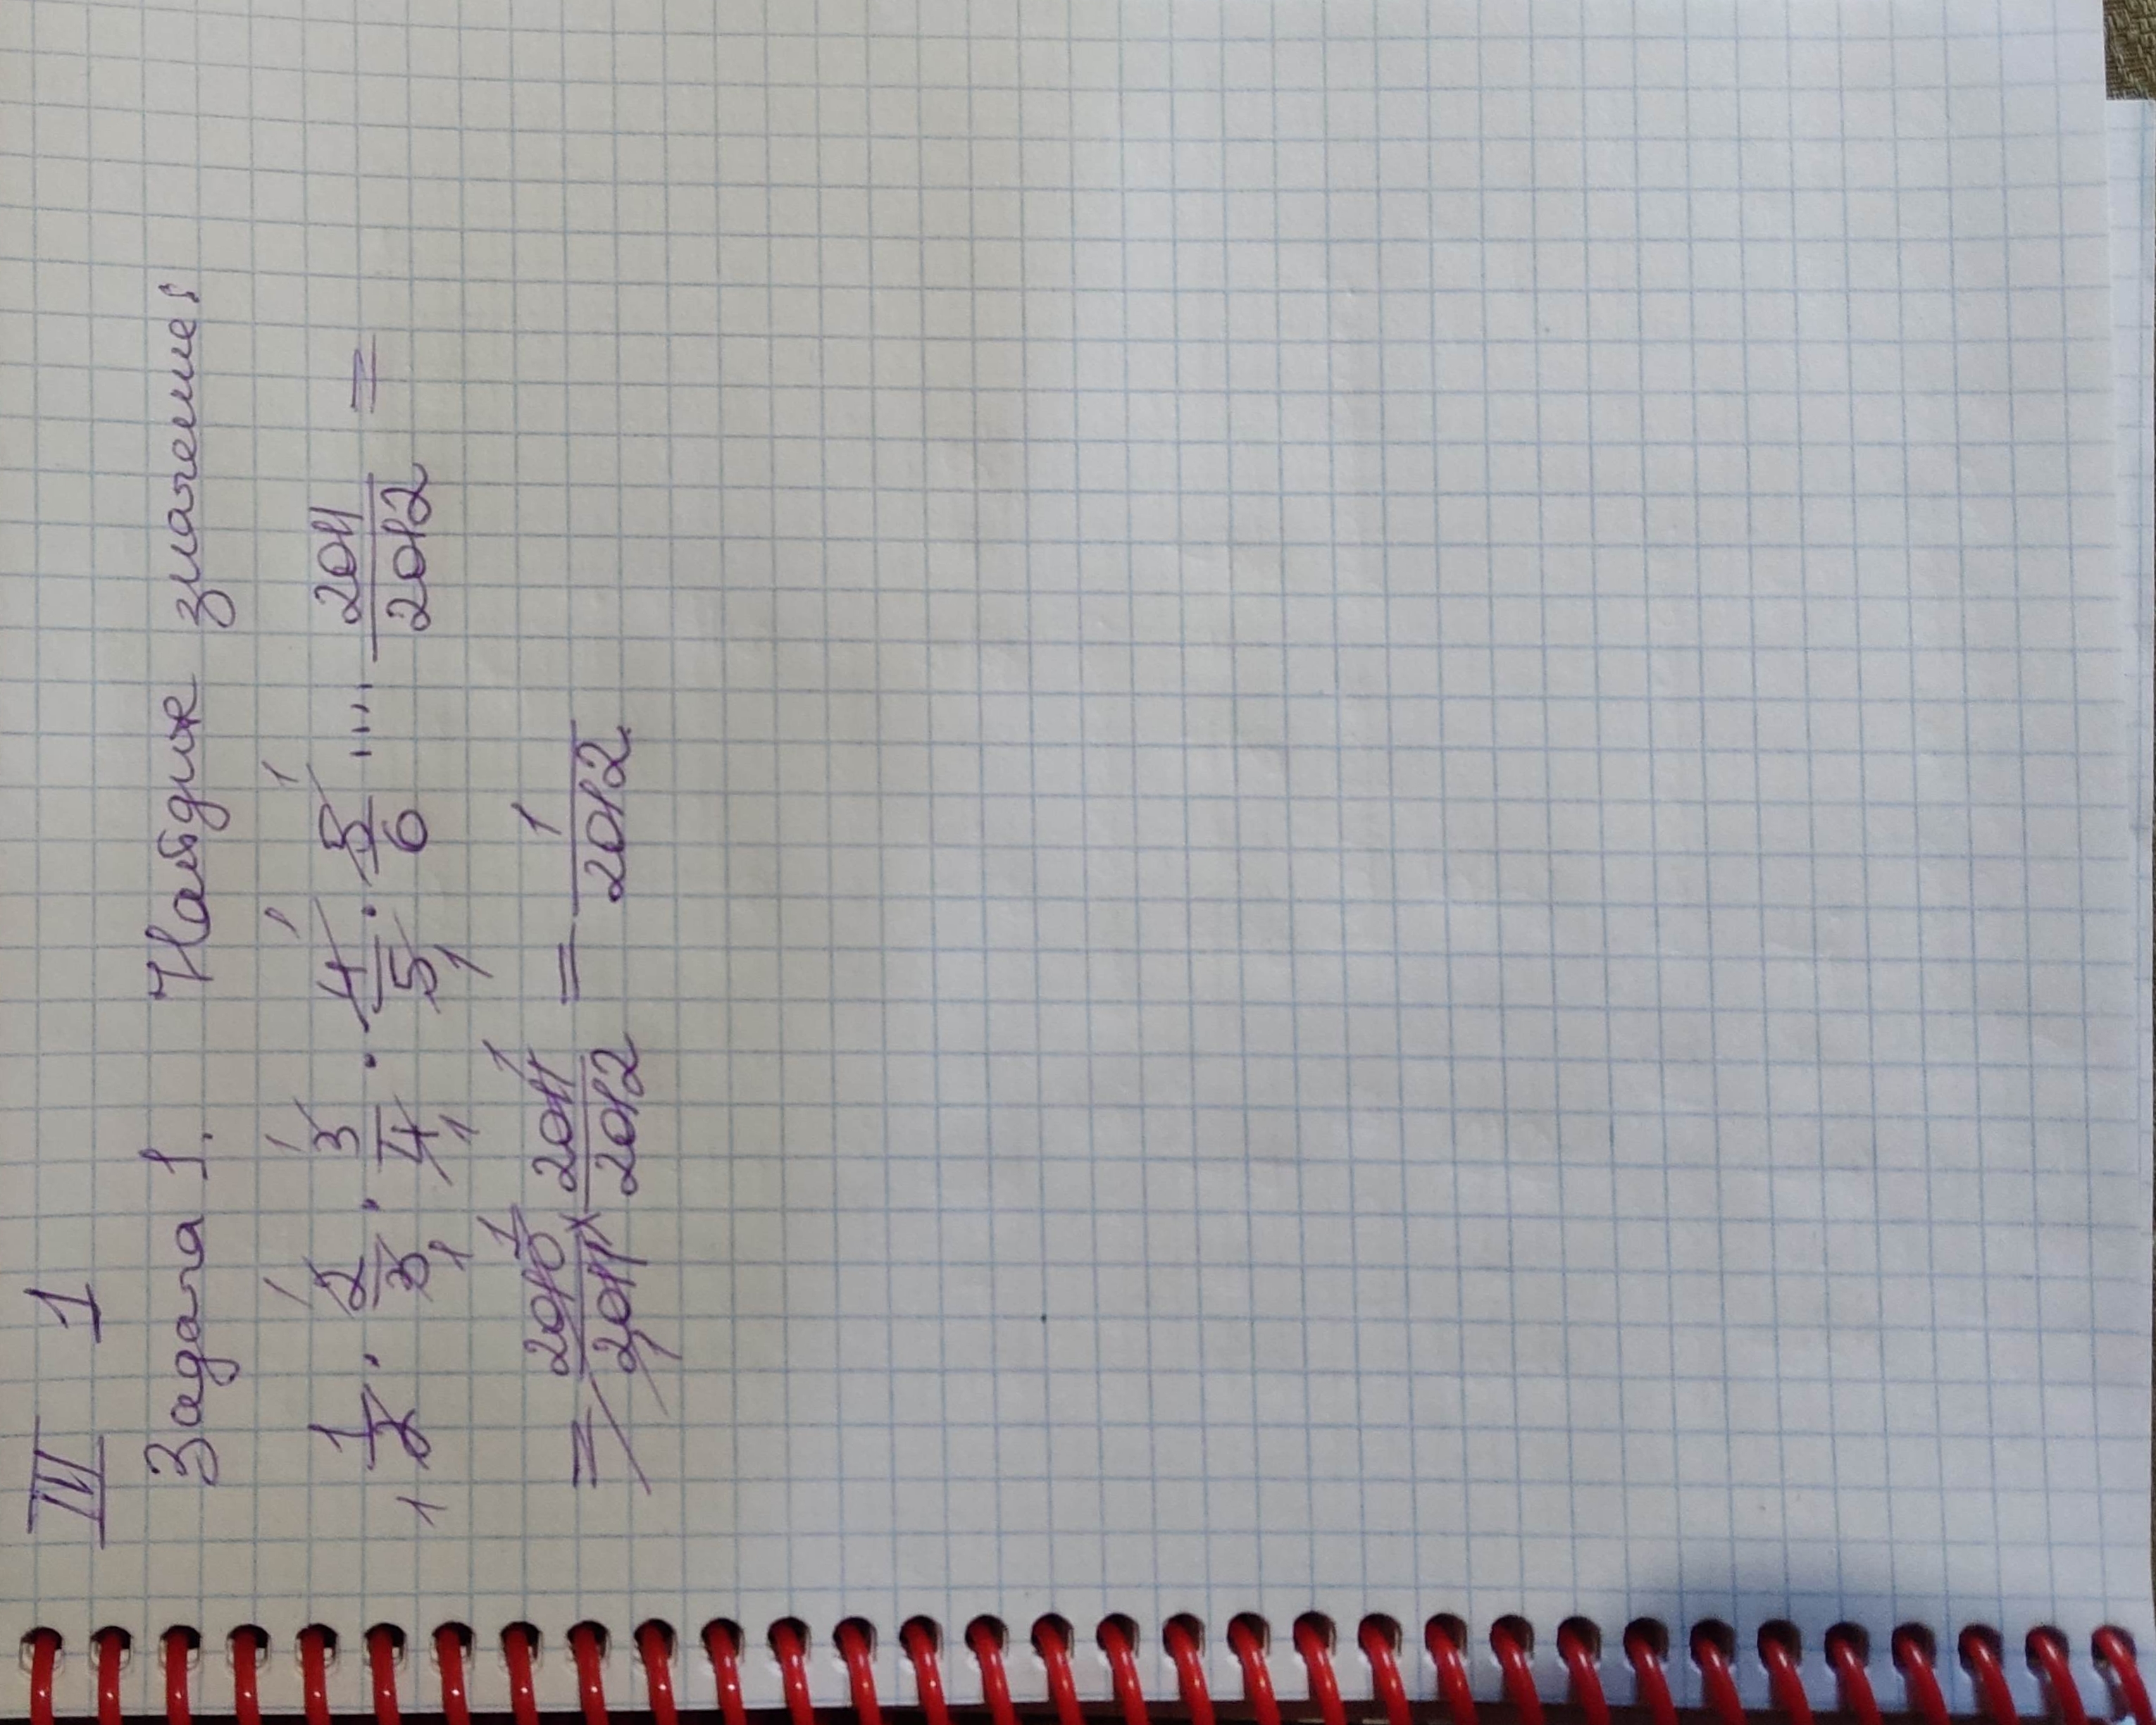 III 1
Задача 1. Найдите значение:
1/2 · 2/3 · 3/4 · 4/5 · 5/6 .... 2011/2012 =
= 2010/2011 × 2011/2012 = 1/2012.